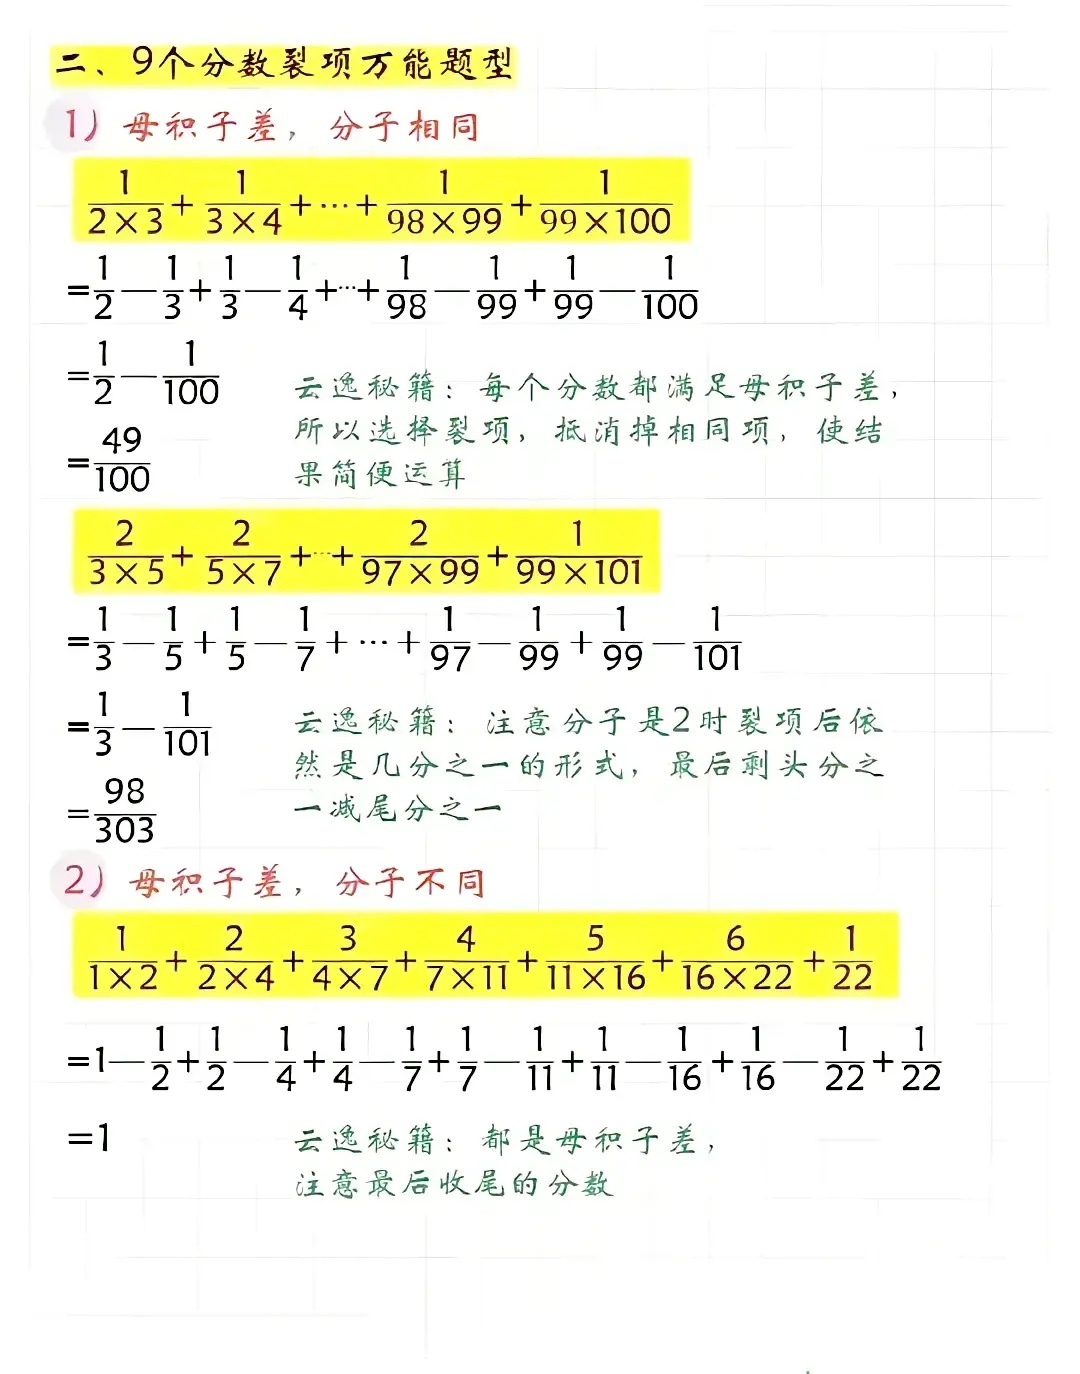 二、9个分数裂项万能题型
1）母积子差，分子相同
1/(2×3)+1/(3×4)+…+1/(98×99)+1/(99×100)
=1/2—1/3+1/3—1/4+…+1/98—1/99+1/99—1/100
=1/2—1/100
=49/100
云逸秘籍：每个分数都满足母积子差，
所以选择裂项，抵消掉相同项，使结
果简便运算
2/(3×5)+2/(5×7)+…+2/(97×99)+1/(99×101)
=1/3—1/5+1/5—1/7+…+1/97—1/99+1/99—1/101
=1/3—1/101
=98/303
云逸秘籍：注意分子是2时裂项后依
然是几分之一的形式，最后剩头分之
一减尾分之一
2）母积子差，分子不同
1/(1×2)+2/(2×4)+3/(4×7)+4/(7×11)+5/(11×16)+6/(16×22)+1/22
=1—1/2+1/2—1/4+1/4—1/7+1/7—1/11+1/11—1/16+1/16—1/22+1/22
=1
云逸秘籍：都是母积子差，
注意最后收尾的分数